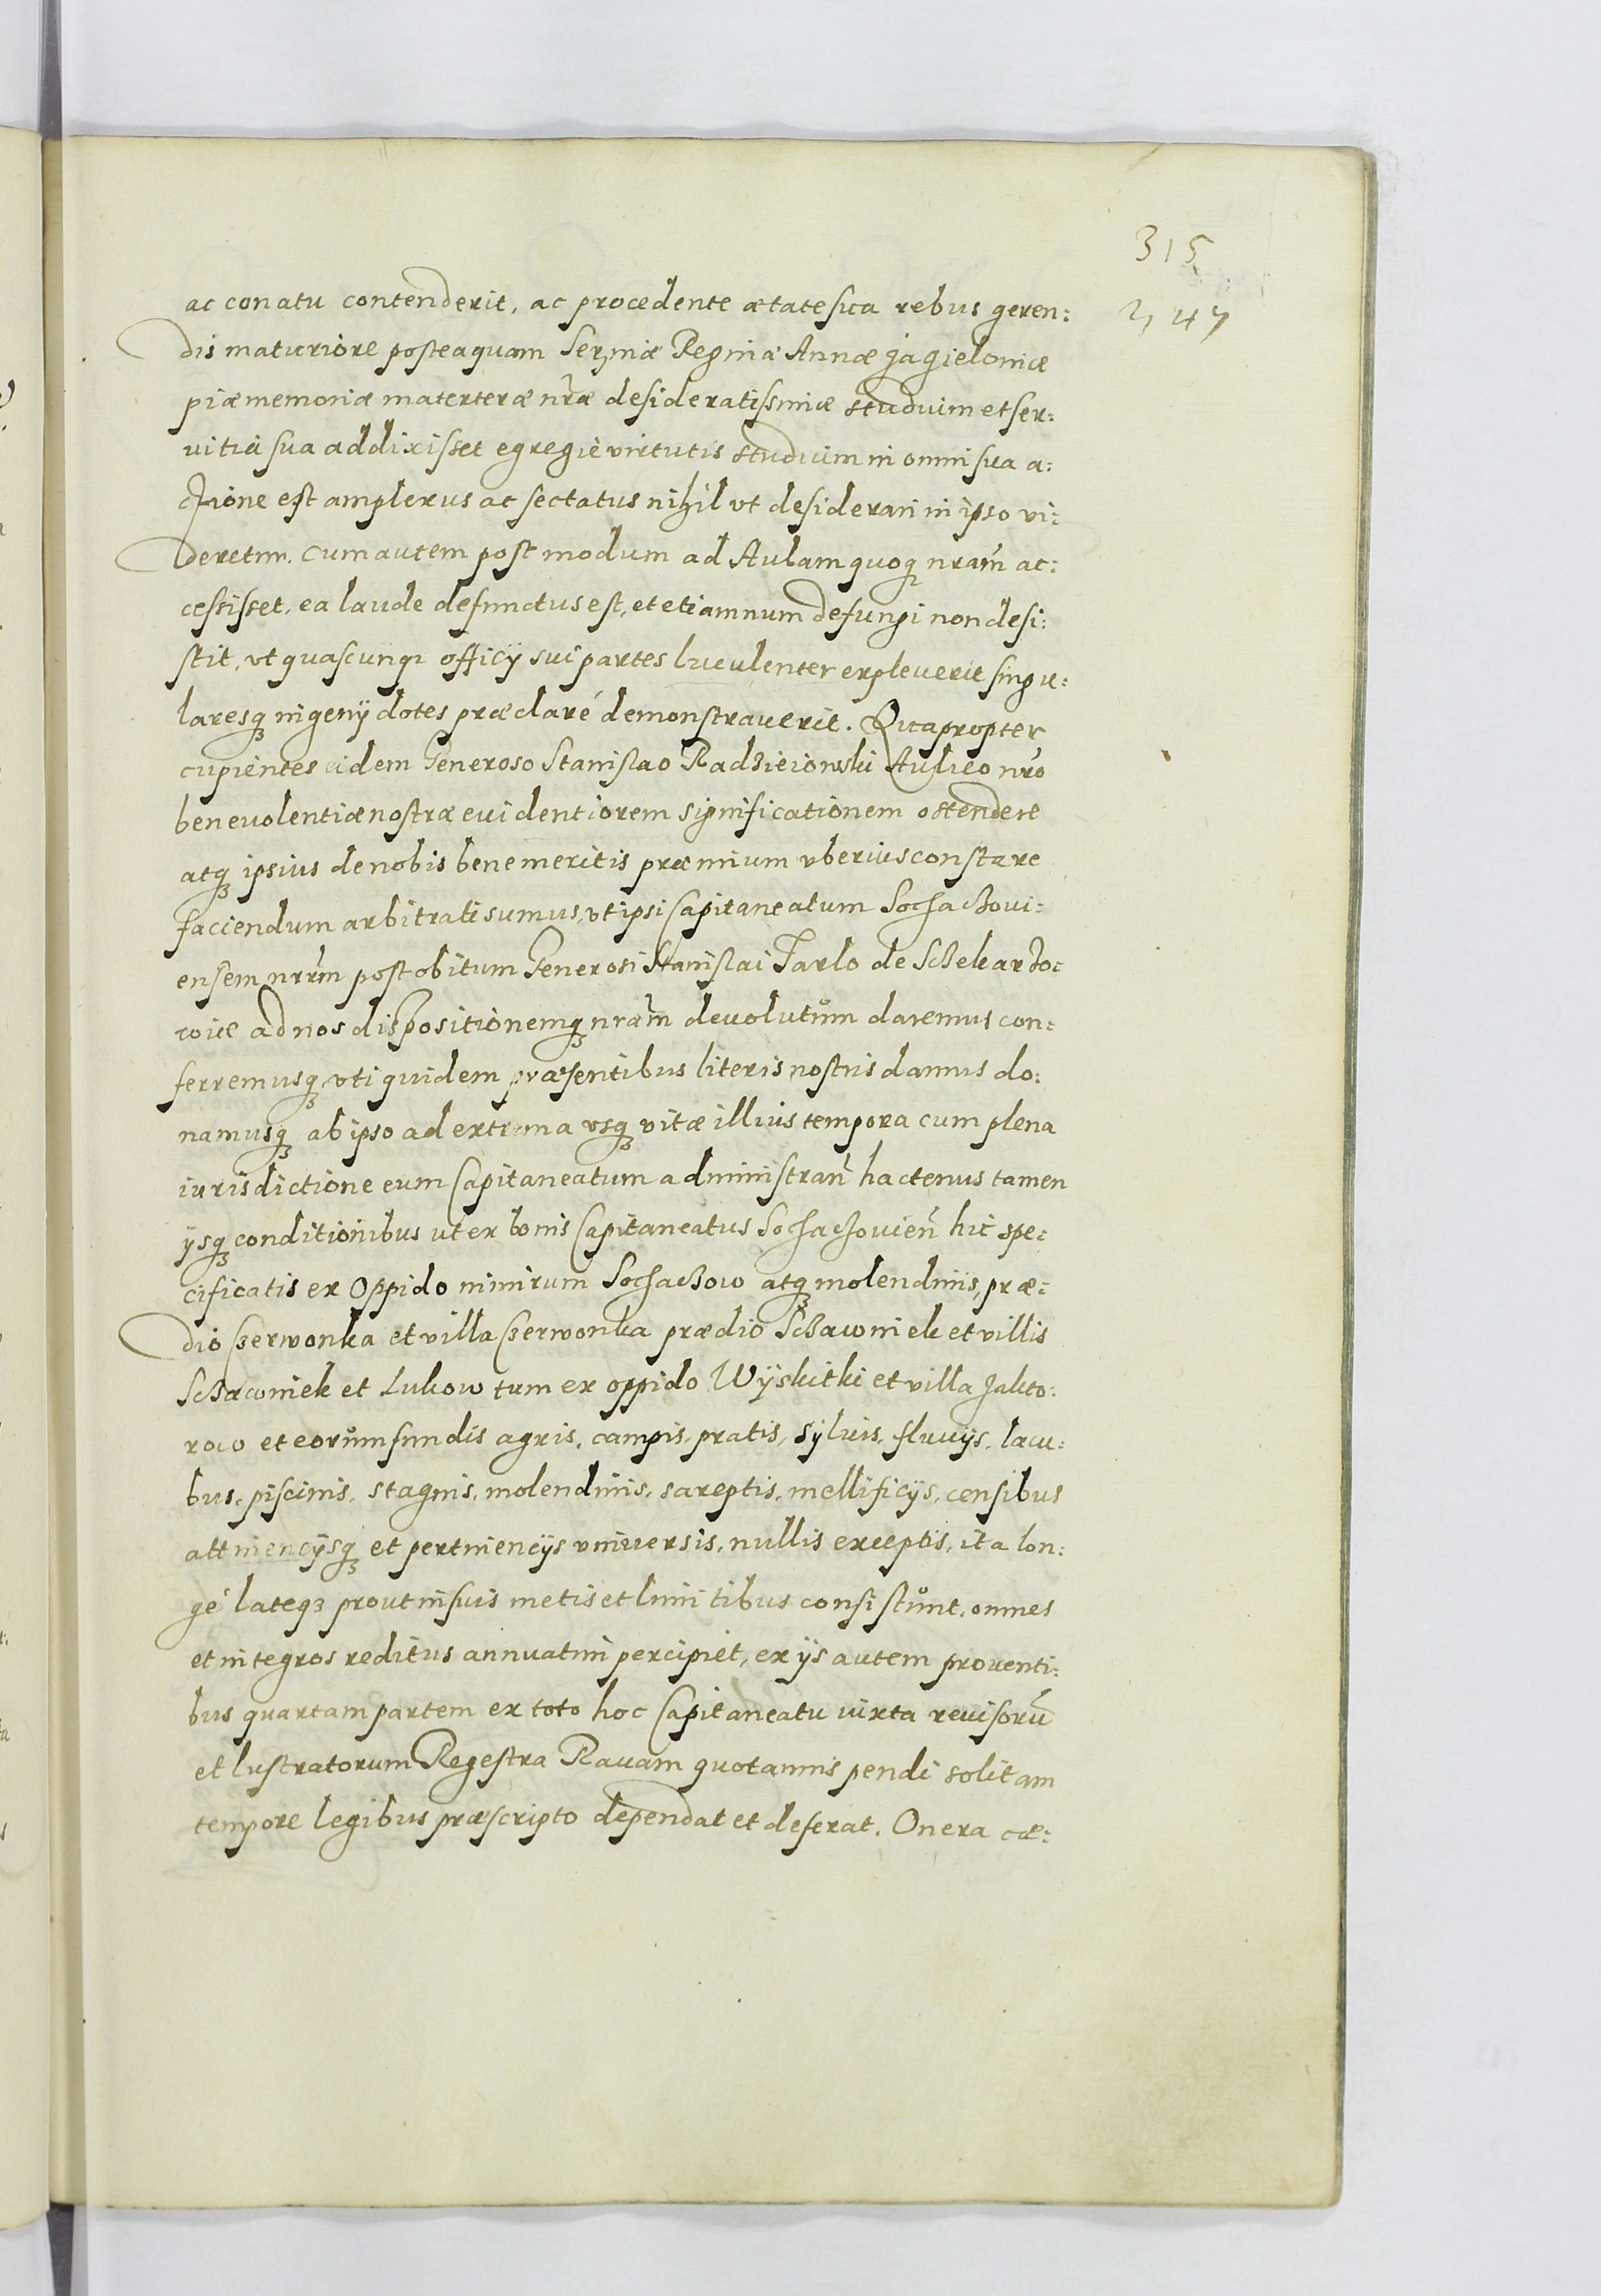 315
247
ac conatu contenderit, ac procedente ætate sua rebus geren:
dis maturiore posteaquam Sermæ Reginæ Annæ Jagieloniæ
piæ memoriæ materteræ nr̃æ desideratissimæ studium et ser:
uitia sua addixisset egregiè virtutis studium in omni sua a:
ctione est amplexus ac sectatus nihil vt desiderari in ipso vi:
deretur. Cum autem post modum ad Aulam quoq nram̃ ac:
cessisset, ea laude defunctus est, et etiamnum defungi non desi:
stit, vt quascunq officÿ sui partes luculenter expleuerit singu:
laresq ingenÿ dotes præclaré demonstrauerit. Quapropter
cupientes eidem Generoso Stanislao Radzieiowski Aulico nrõ
beneuolentiæ nostræ euidentiorem significationem ostendere
atq ipsius de nobis benemeritis præmium vberius constare
faciendum arbitrati sumus, vt ipsi Capitaneatum Sochaczoui:
ensem nrũm post obitum Generosi Stanislai Tarlo de Sczekarzo:
wice ad nos dispositionemq nram̃ deuolutum daremus con:
ferremusq vti quidem præsentibus literis nostris damus do:
namusq ab ipso ad extrema vsq vitæ illius tempora cum plena
iurisdictione eum Capitaneatum administrañ hactenus tamen
ÿsq conditionibus ut ex bonis Capitaneatus Sochaczouieñ hic spe:
cificatis ex Oppido nimirum Sochaczow atq molendinis, præ:
dio Czerwonka et villa Czerwonka prædio Sczawniek et villis
Sczawniek et Lukow tum ex oppido Wÿskitki et villa Jakto:
row et eorum fundis agris, campis, pratis, sÿluis, fluuÿs, lacu:
bus, piscinis, stagnis, molendinis, sareptis, mellificÿs, censibus
attinencÿsq et pertinencÿs vniuersis, nullis exceptis, ita lon:
gé lateq prout in suis metis et limitibus consistunt, omnes
et integros reditus annuatim percipiet, ex ÿs autem prouenti:
bus quartam partem ex toto hoc Capitaneatu iuxta reuisorũ
et lustratorum Regestra Rauam quotannis pendi solitam
tempore legibus præscripto dependat et deferat. Onera cæ: